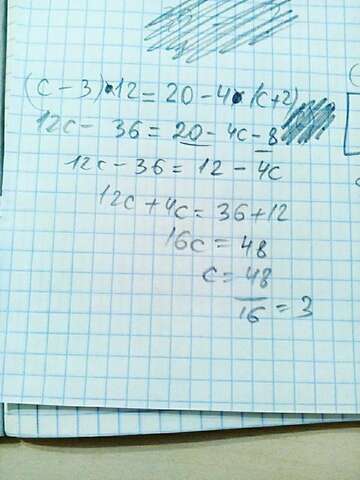 (c - 3) • 12 = 20 - 4 • (c+2)
12c - 36 = 20 - 4c - 8
12c - 36 = 12 - 4c
12c + 4c = 36 + 12
16c = 48
c = 48/16 = 3